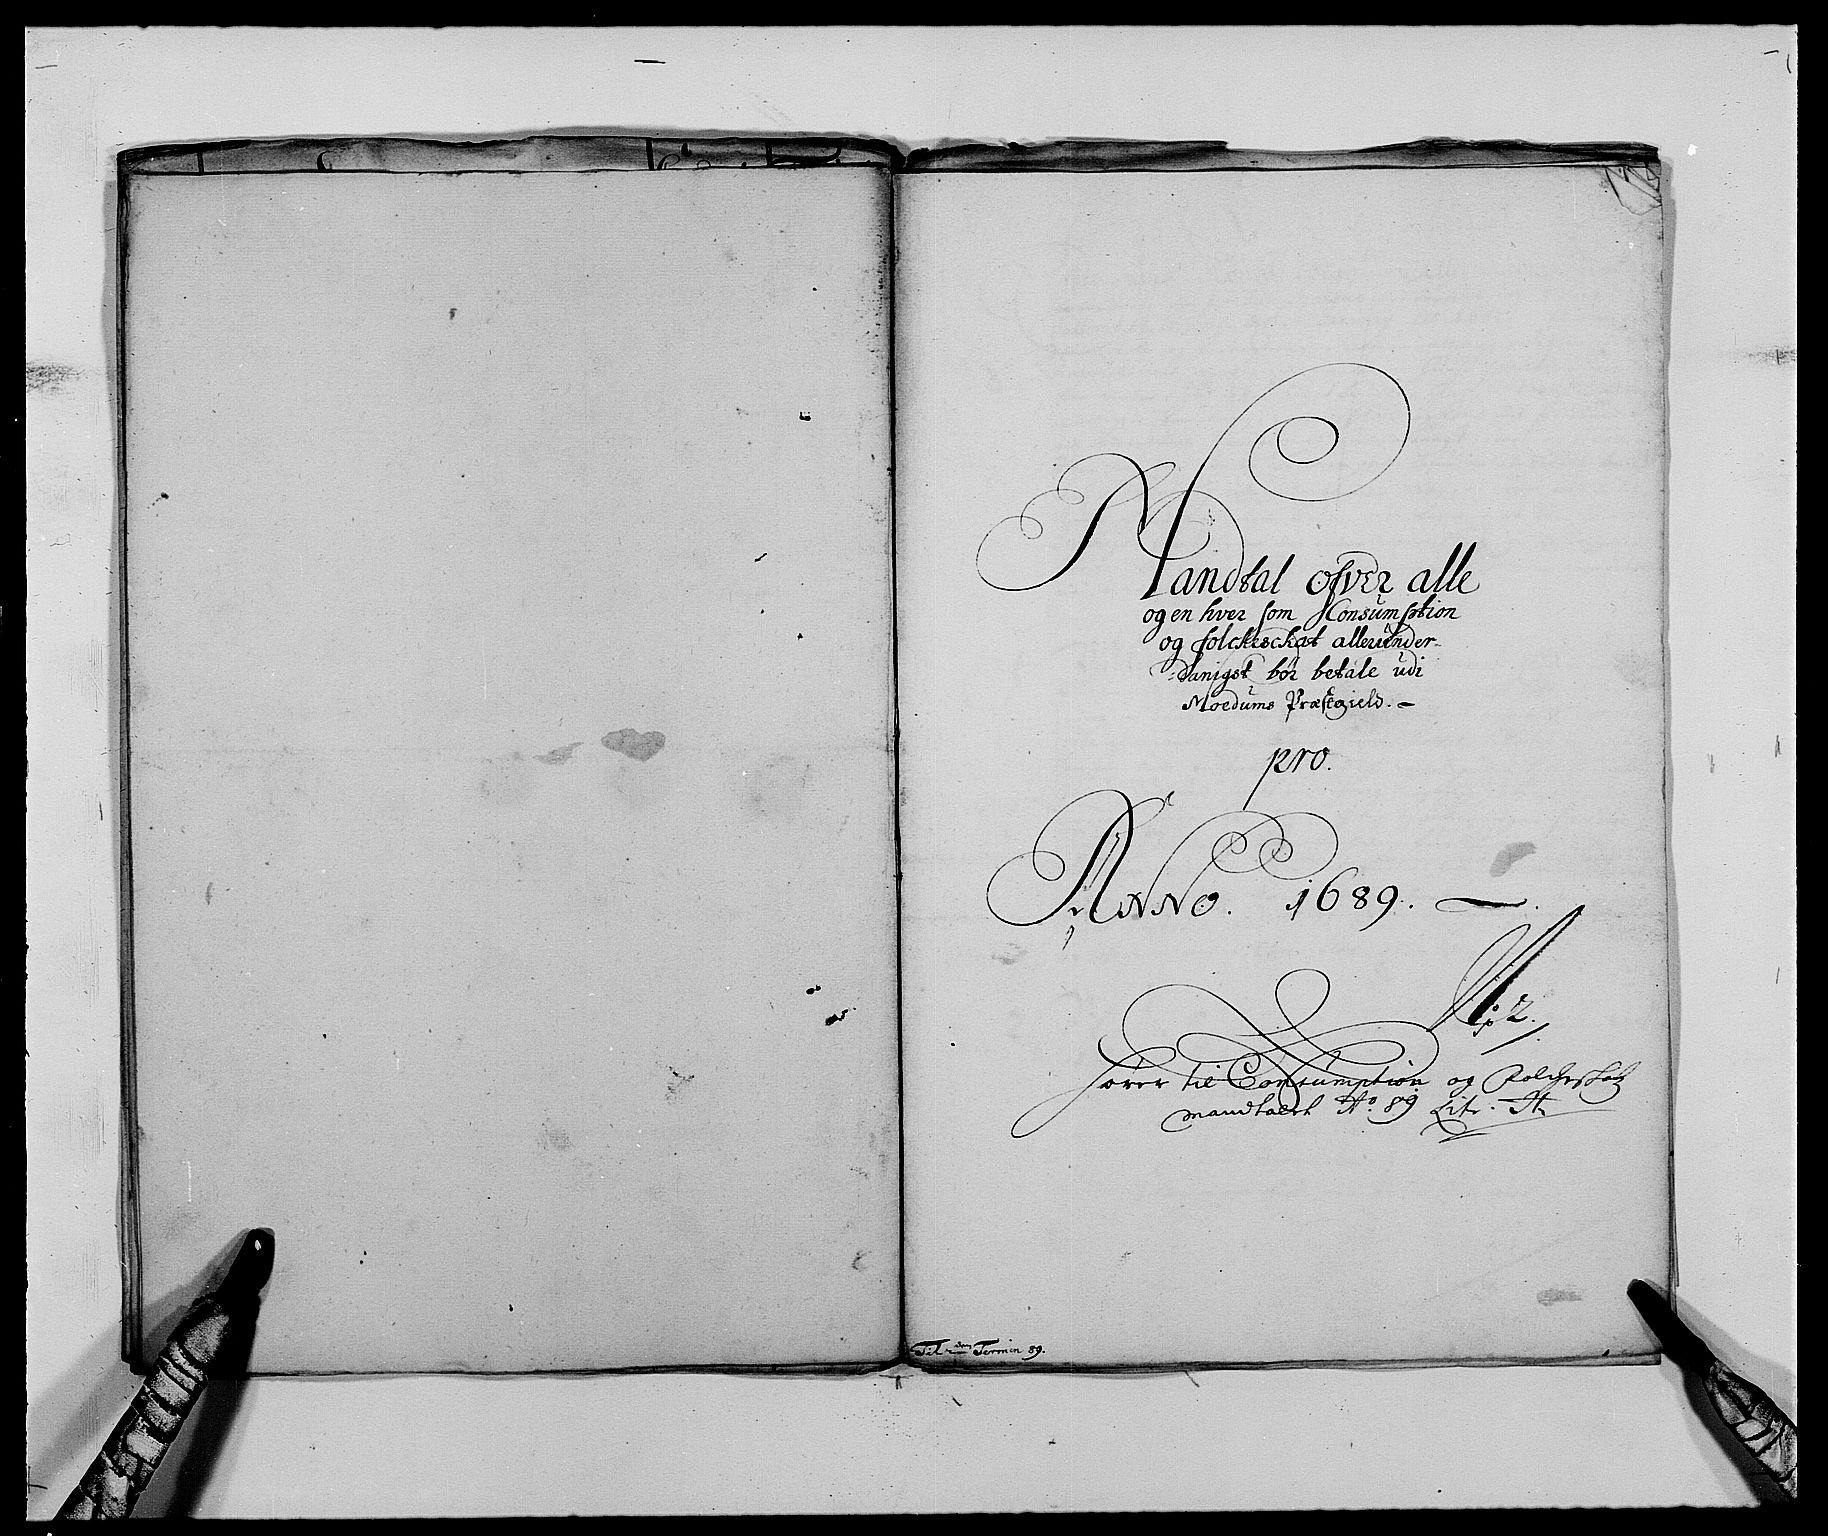 Mandtal ofver alle
og en hver som Consumption
og folckeschat allerunder-
:danigst bør betale udi
Moedums Præstegield. –
pro.
ANNO. 1689. —
N: 2.
hører til Consumption og Folcheskatz
mandtalet Ao. 89 Litr. A
Til 2den Termin 89.